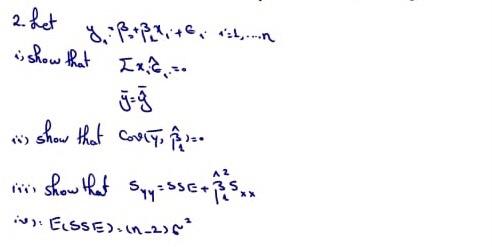 2. Let yᵢ = β₀ + β₁xᵢ + ϵᵢ, i=1,....n
i) show that Σxᵢϵ̂ᵢ = 0
ȳ = ŷ̄
ii) show that Cov(ȳ, β̂₁) = 0
iii) show that Syy = SSE + β̂₁² Sxx
iv): E(SSE) = (n-2)σ²